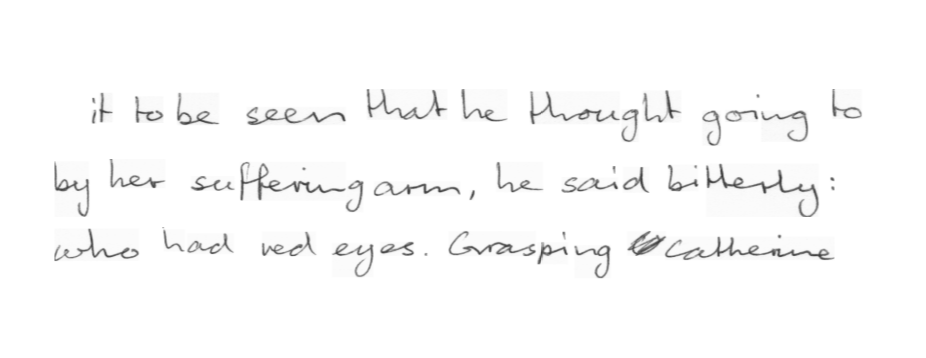 it to be seen that he thought going to
by her suffering arm, he said bitterly:
who had red eyes. Grasping Catherine